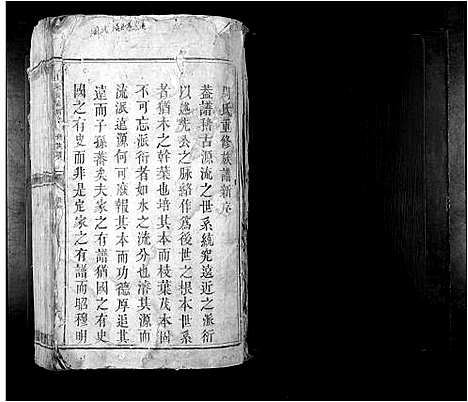 周氏重修族譜新序
蓋譜稽古源流之世系統究遠近之派衍
以遡先公之脉絡作爲後世之根本世系
者猶木之幹葉也培其本而枝葉茂本固
不可忘派衍者如水之流分也濬其源而
流派遠源何可廢報其本而功德厚追其
遠而子孫蕃矣夫家之有譜猶國之有史
國之有史而非是定家之有譜而昭穆明